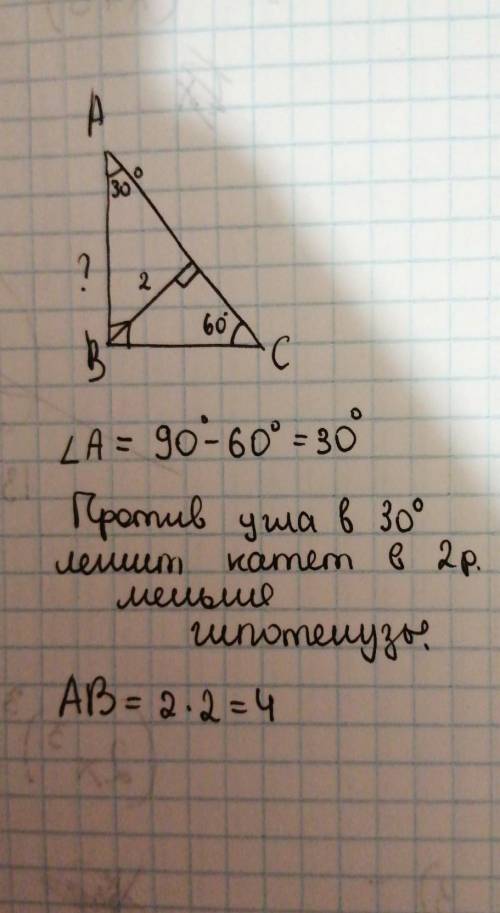 A
30°
?
2
60°
B
C
∠A = 90° - 60° = 30°
Против угла в 30°
лежит катет в 2р.
меньше
гипотенузы.
AB = 2 · 2 = 4